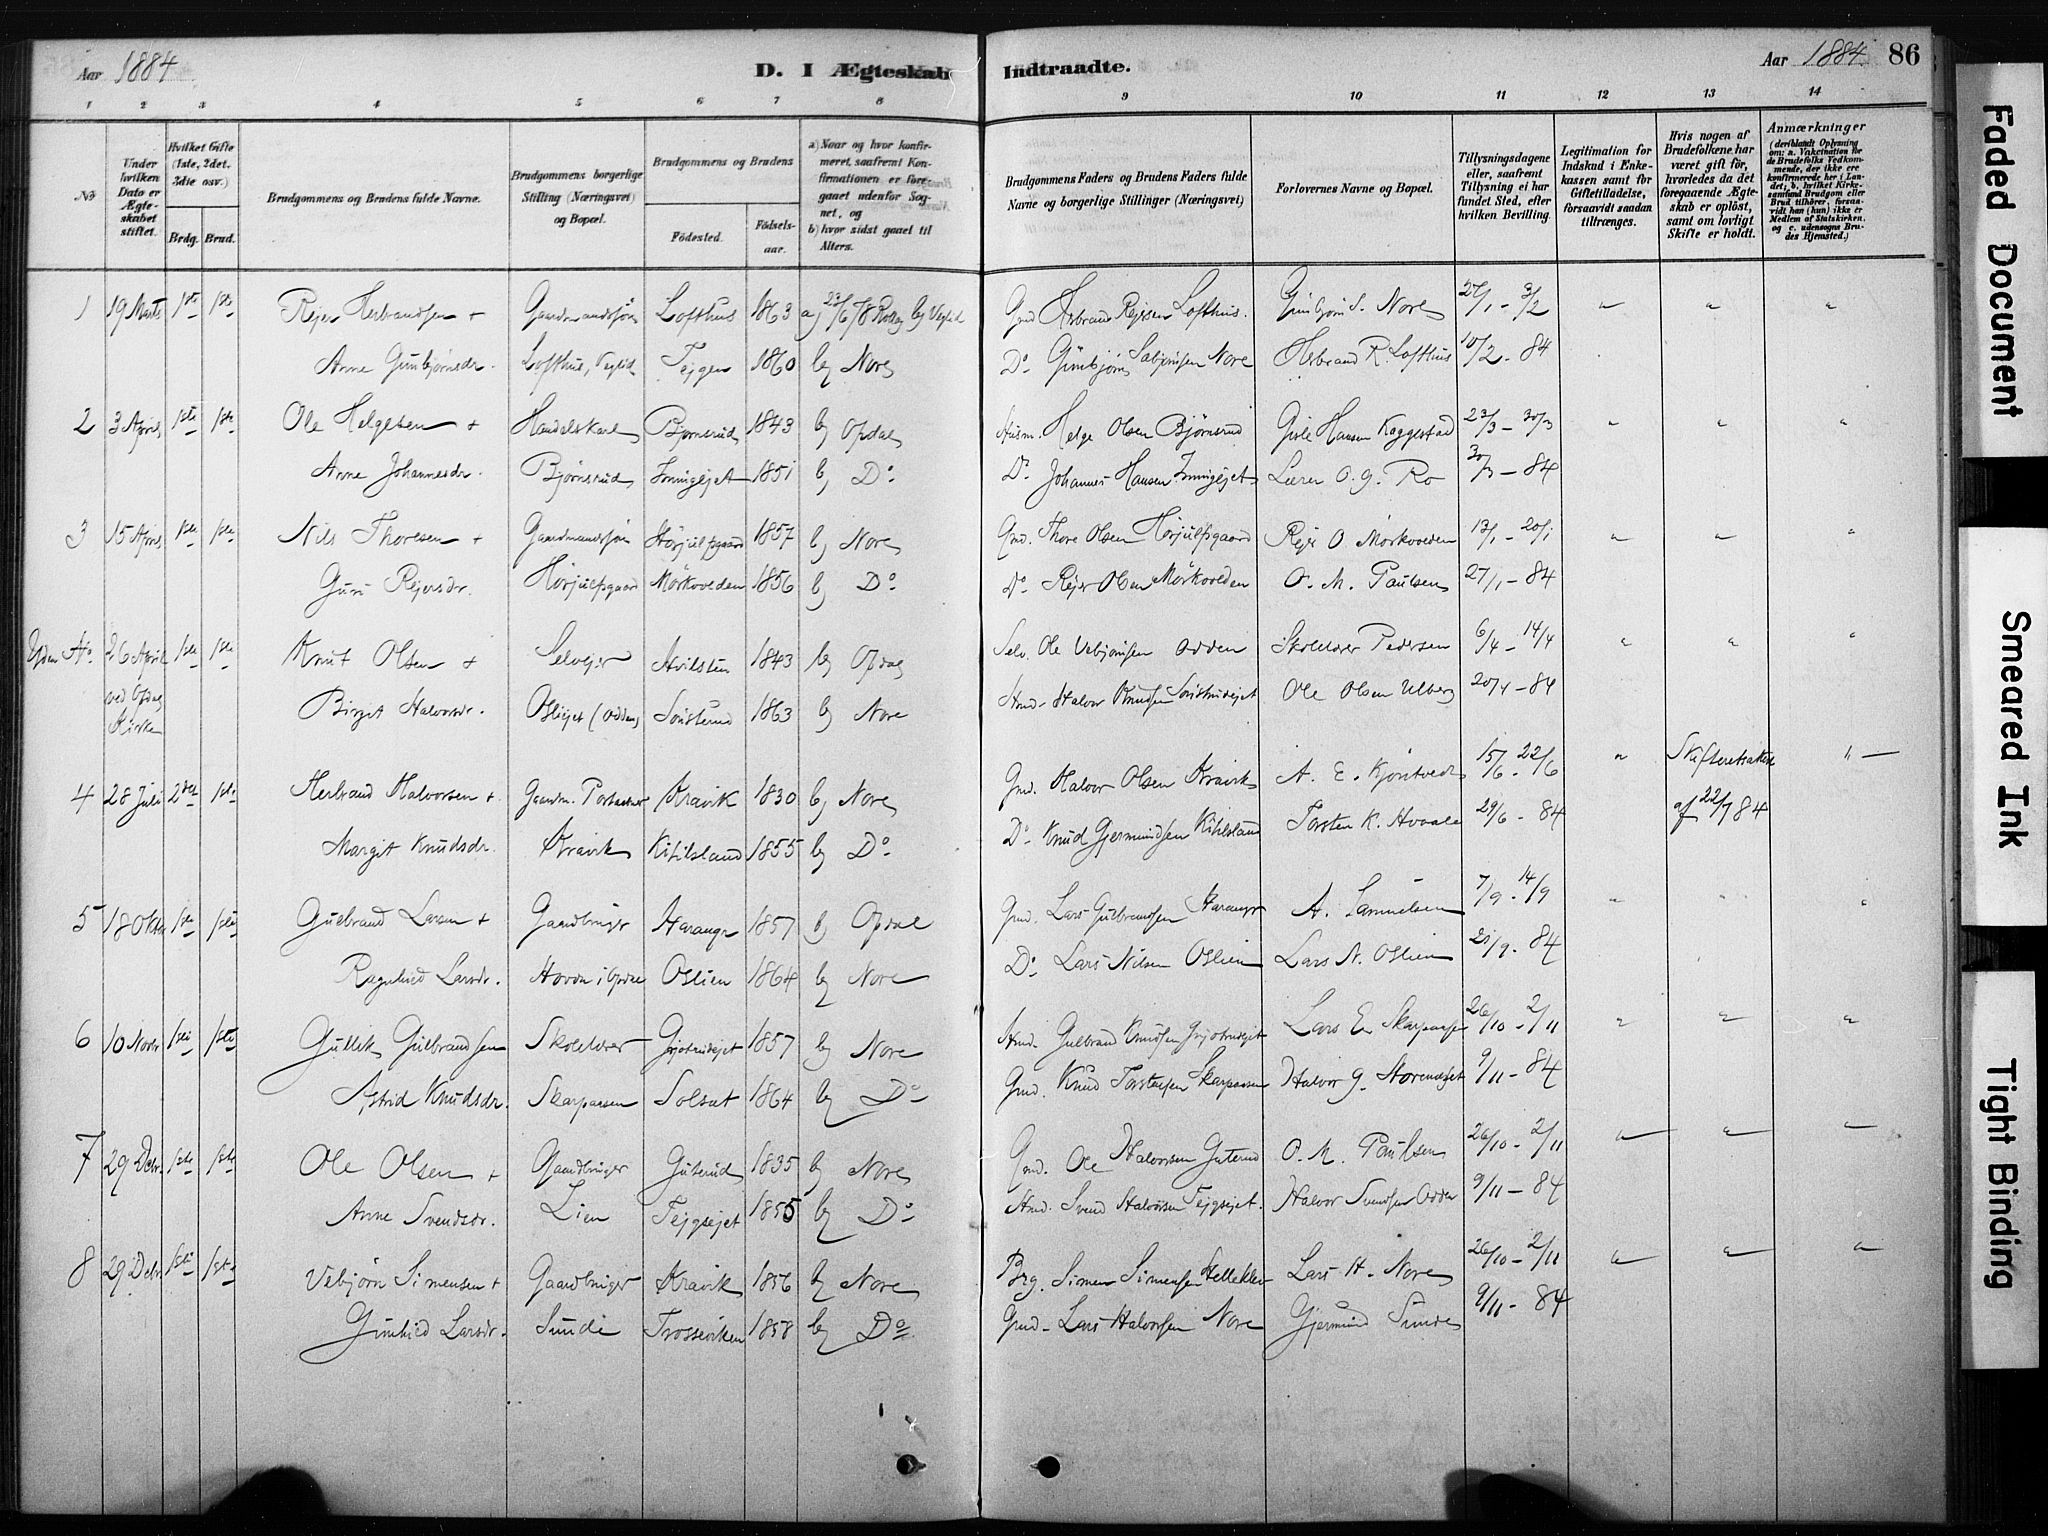 Aar 1884
D. I Ægteskab Indtraadte.
Aar 1884. 86
1 2 3 4 5 6 7 8 9 10 11 12 13 14
No
Under hvilken Dato er Ægteskabet stiftet.
Hvilket Gifte (1ste, 2det, 3die osv.)
Brdg. Brud.
Brudgommens og Brudens fulde Navne.
Brudgommens borgerlige Stilling (Næringsvei) og Bopæl.
Brudgommens og Brudens
Födested. Födselsaar.
a) Naar og hvor konfirmeret, saafremt Konfirmationen er foregaaet udenfor Sognet, og
b) hvor sidst gaaet til Alters.
Brudgommens Faders og Brudens Faders fulde Navne og borgerlige Stillinger (Næringsvei)
Forlovernes Navne og Bopæl.
Tillysningsdagene eller, saafremt Tillysning ei har fundet Sted, efter hvilken Bevilling.
Legitimation for Indskud i Enkekassen samt for Giftetilladelse, forsaavidt saadan tiltrænges.
Hvis nogen af Brudefolkene har været gift för, hvorledes da det foregaaende Ægteskab er oplöst, samt om lovligt Skifte er holdt.
Anmærkninger (deriblandt Oplysning om: a. Vakcination for de Brudefolks Vedkommende, der ikke ere konfirmerede her i Landet; b. hvilket Kirkesamfund Brudgom eller Brud tilhörer, forsaavidt han (hun) ikke er Medlem af Statskirken, og c. udensogns Brudes Hjemsted.)
1 19 Marts 1ste 1ste Rejer Herbrandsen + Gaardmandssøn Lofthus 1863 a) 23/6 78 Rollag b) Veglid Gmd Herbrand Rejersen Lofthus. Gunbjørn S. Nore 27/1 - 3/2 " " "
Anne Gunbjørnsdr. Lofthus, Veglid Tejgen 1860 b) Nore Do Gunbjørn Sebjørnsen Nore Herbrand R. Lofthus 10/2 - 84
2 3 April 1ste 1ste Ole Helgesen + Handelskarl Bjørnsrud 1843 b) Opdal Husm. Helge Olsen Bjørnsrud Gisle Hansen Kaggestad 23/3 - 30/3 " " "
Anne Johannesdr. Bjørnsrud 1851 b) Do Do Johannes Hansen Lærer O. G. Ro 84
3 15 April 1ste 1ste Nils Thoresen + Gaardmandssøn Hørjulfsgaard 1857 b) Nore Gmd. Thore Olsen Hørjulfsgaard Rejer O. Mørkvolden 13/1 - 20/1 " " "
Guri Rejersdr. Hørjulfsgaard Mørkvolden 1856 b) Do Do Rejer Olsen Mørkvolden O. M. Paulsen 27/1 - 84
26 April 1ste 1ste Knut Olsen + Selvejer Hvilsten 1843 b) Opdal Selv. Ole Vebjørnsen Odden Skolelærer Pedersen 6/4 - 14/4 " " "
ved Opdal Kirke Birget Halvorsdr. (Odden) 1863 b) Nore Halvor Knudsen Ole Olsen Ulberg 20/4 - 84
4 28 Juli 2det 1ste Herbrand Halvorsen + Gaardm. Kravik 1830 b) Nore Gmd. Halvor Olsen Kravik A. E. 15/6 - 22/6 " Skifteretsattest " —
Margit Knudsdr. Kravik Kihlsland 1855 b) Do Do Knud Gjermundsen Kihlsland Torsten K. Hvaale 29/6 - 84 af 22/7 84
5 18 Oktbr 1ste 1ste Gulbrand Larsen + Gaardbruger 1857 b) Opdal Gmd. Lars Gulbrandsen A. Samuelsen 7/9 - 14/9 " " "
Ragnhild Larsdr. Hovde i Opdal Oslien 1864 b) Nore Do Lars Nilsen Oslien Lars N. Oslien 21/9 - 84
6 10 Novbr 1ste 1ste Gullik Gulbrandsen Skolelærer 1857 b) Nore Gulbrand Knudsen Lars E. 26/10 - 2/11 " " "
Astrid Knudsdr. 1864 b) Do Gmd. Knud Torstensen Halvor G. 9/11 - 84
7 29 Decbr. 1ste 1ste Ole Olsen + Gaardbruger Guterud 1835 b) Nore Gmd. Ole Halvorsen Guterud O. M. Paulsen 26/10 - 2/11 " " "
Anne Svendsdr. Lien Tejgsejet 1855 b) Do Svend Halvorsen Tejgsejet. Halvor Svendsen Odden 9/11 - 84
8 29 Decbr 1ste 1ste Vebjørn Simensen + Gaardbruger Kravik 1856 b) Nore Simen Simensen Lars H. Nore 26/10 - 2/11 " " "
Gunhild Larsdr. Sunde Trosseviken 1858 b) Do Gmd. Lars Halvorsen Nore Gjermund Sunde 9/11 - 84
Faded Document
Smeared Ink
Tight Binding